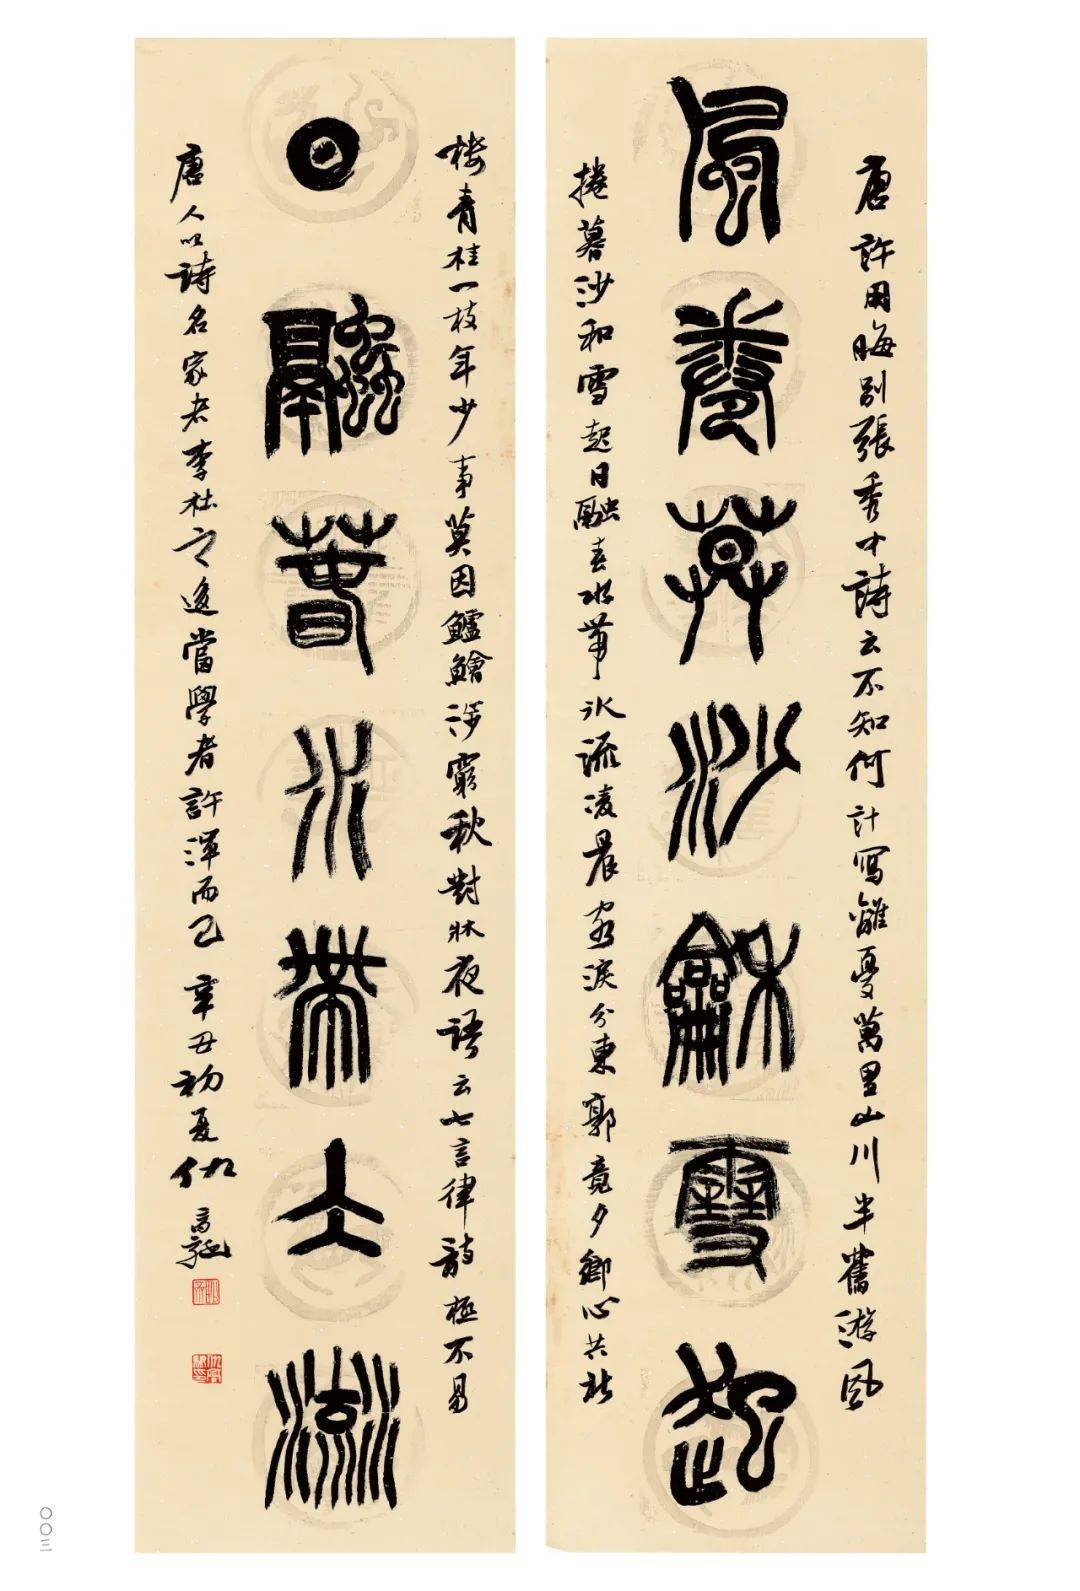 風卷莫沙龢雪起
日融萅水帶仌流
唐許用晦別張秀才詩云不知何計寫離憂萬里山川半舊游風
捲暮沙和雪起日融春水帶冰流凌晨客淚分東郭竟夕鄉心共北
樓青桂一枝年少事莫因鱸鱠涉窮秋對牀夜語云七言律詩極不易
唐人以詩名家者李杜之後當學者許渾而已辛丑初夏
〇〇三